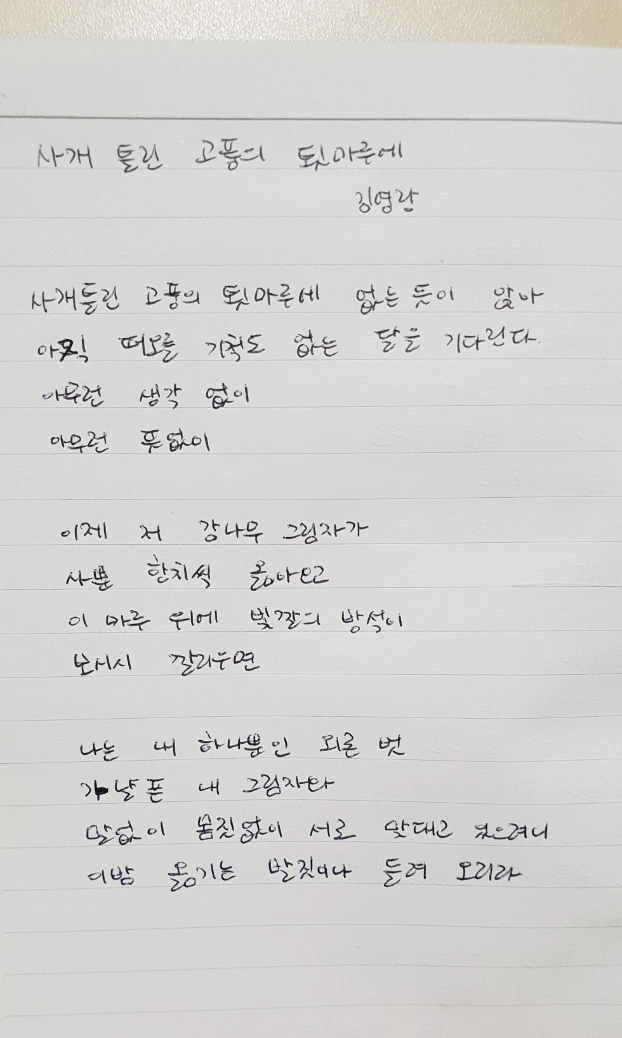 사개 틀린 고풍의 툇마루에
김영랑
사개틀린 고풍의 툇마루에 없는 듯이 앉아
아직 떠오를 기척도 없는 달을 기다린다.
아무런 생각 없이
아무런 뜻없이
이제 저 감나무 그림자가
사뿐 한치씩 옮아오고
이 마루 위에 빛깔의 방석이
보시시 깔리우면
나는 내 하나뿐인 외론 벗
가냘픈 내 그림자와
말없이 몸짓없이 서로 맞대고 있으려니
이밤 옮기는 발짓이나 들려 오리라